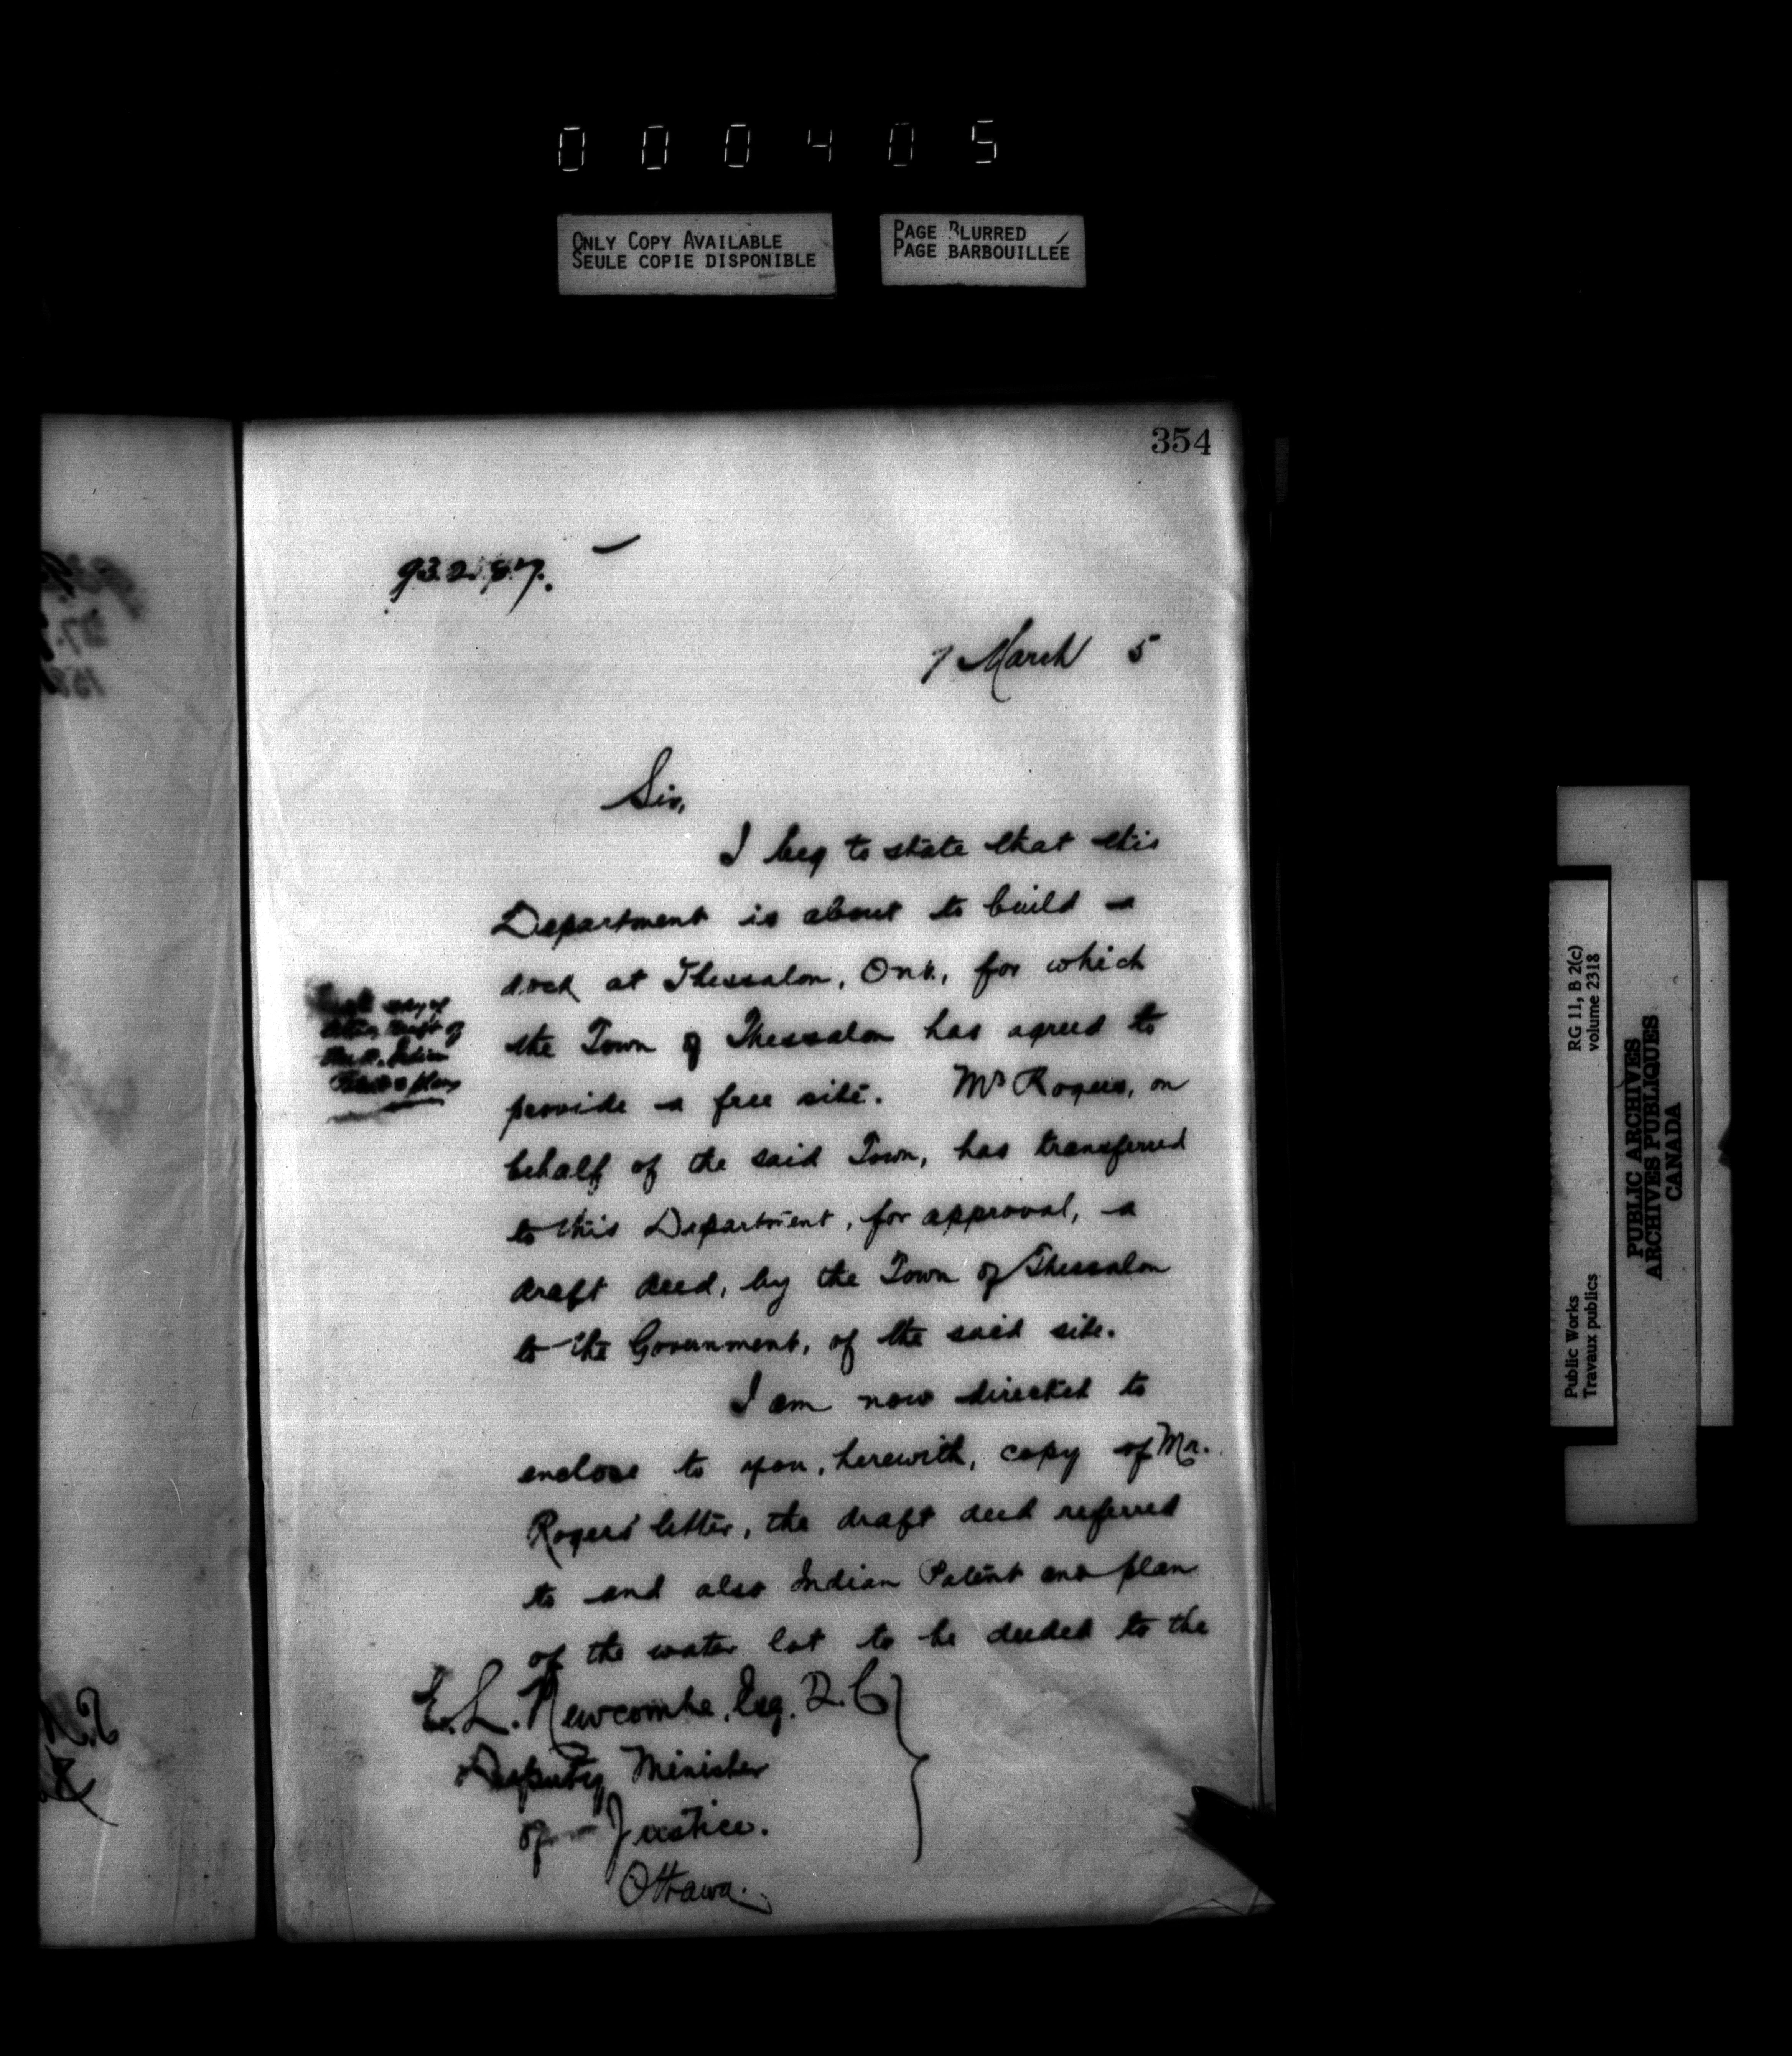 0 0 0 4 0 5
ONLY COPY AVAILABLE
SEULE COPIE DISPONIBLE
PAGE BLURRED
PAGE BARBOUILLÉE
354
7 March 5
Sir,
I beg to state that this
Department is about to build a
dock at Thessalon, Ont., for which
the Town of Thessalon has agreed to
provide a free site. Mr Rogers, on
behalf of the said Town, has transferred
to this Department, for approval, a
draft deed, by the Town of Thessalon
to the Government, of the said site.
I am now directed to
enclose to you, herewith, copy of Mr.
Rogers' letter, the draft deed referred
to and also Indian Patent and plan
of the water lot to be deeded to the
E. L. Newcombe, Esq.
Deputy Minister
of Justice.
Ottawa.
Public Works
Travaux publics
RG 11, B 2(c)
volume 2318
PUBLIC ARCHIVES
ARCHIVES PUBLIQUES
CANADA